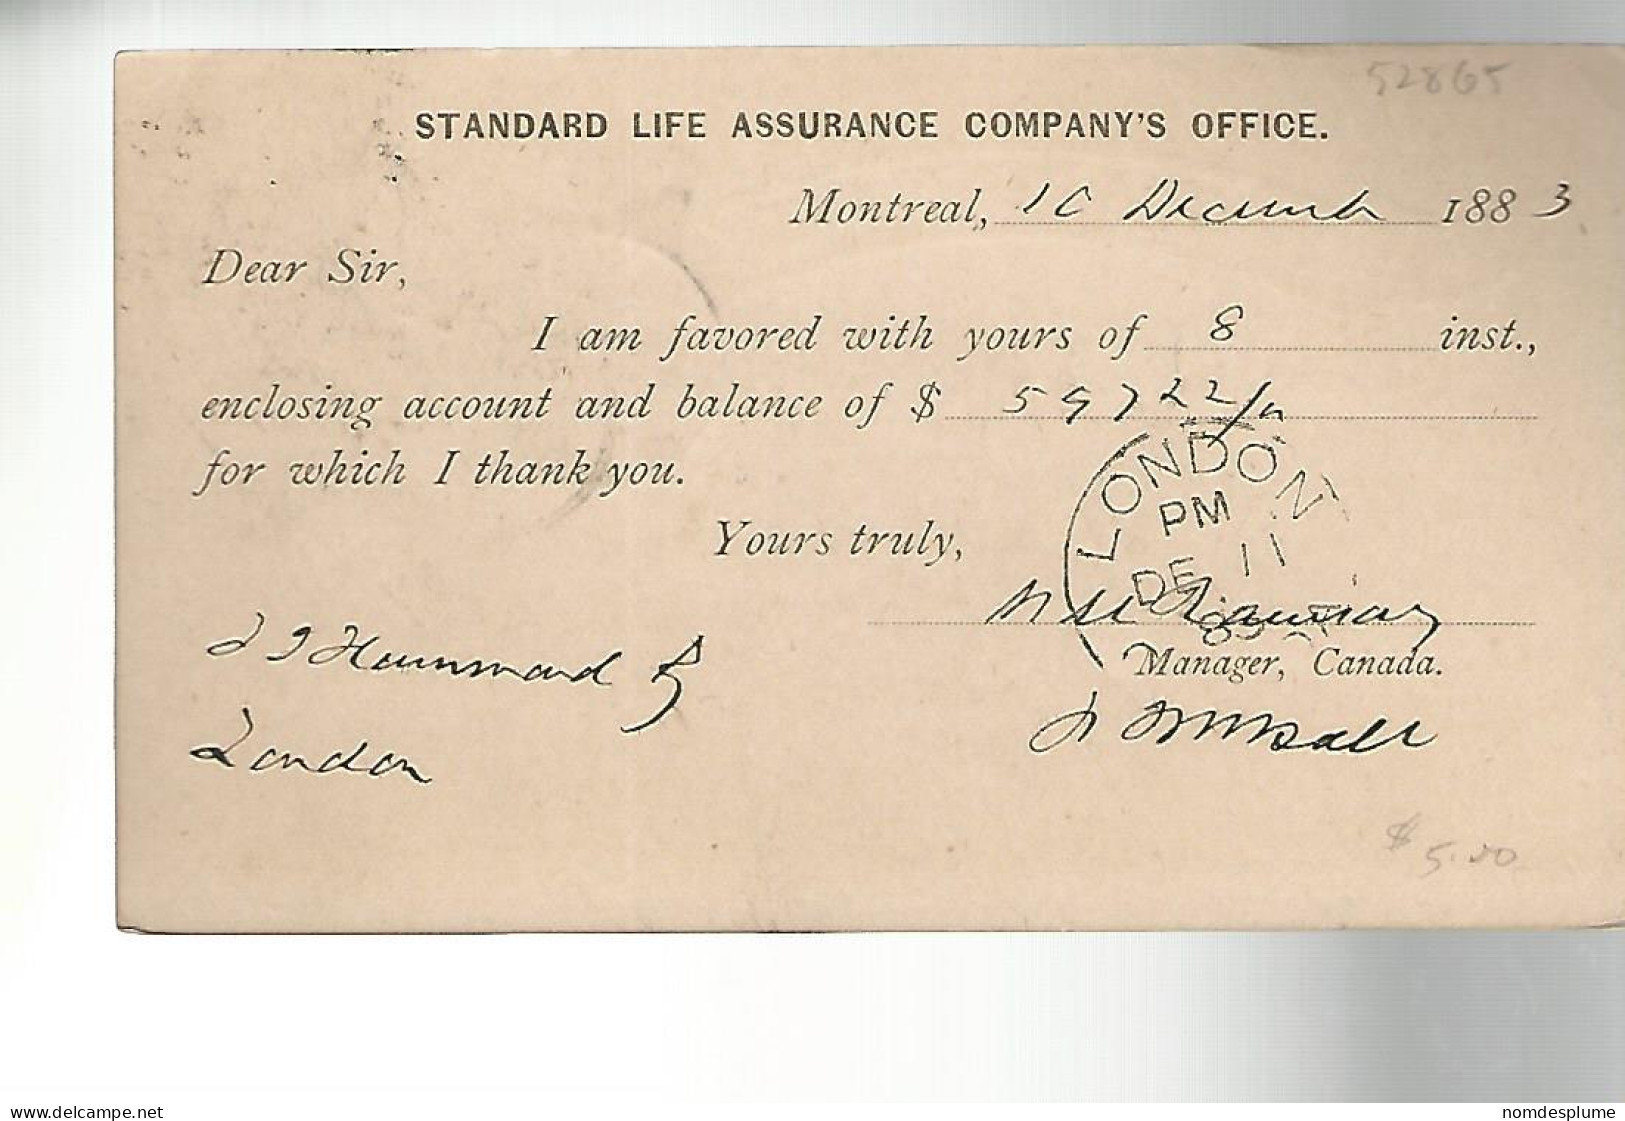 52865
STANDARD LIFE ASSURANCE COMPANY'S OFFICE.
Montreal, 10 December 1883
Dear Sir,
I am favored with yours of 8 inst.,
enclosing account and balance of $ 597 22/
for which I thank you.
Yours truly,
LONDON
PM
DE 11
W M Ramsay
Manager, Canada.
Hammond
London
$ 5.00
www.delcampe.net
nomdesplume